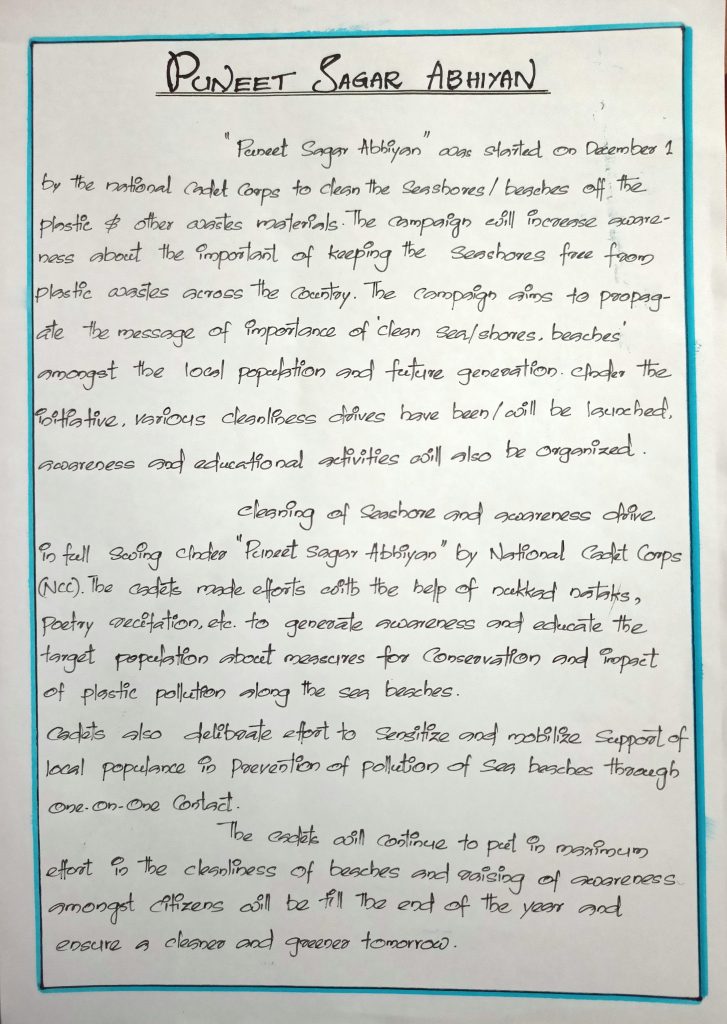 PUNEET SAGAR ABHIYAN
"Puneet Sagar Abhiyan" was started on December 1
by the national Cadet Corps to clean the seashores/beaches off the
plastic & other wastes materials. The campaign will increase aware-
ness about the important of keeping the seashores free from
plastic wastes across the country. The campaign aims to propag-
ate the message of importance of 'clean sea/shores, beaches'
amongst the local population and future generation. Under the
initiative, various cleanliness drives have been/will be launched,
awareness and educational activities will also be organized.
Cleaning of seashore and awareness drive
in full swing Under "Puneet Sagar Abhiyan" by National Cadet Corps
(NCC). The cadets made efforts with the help of nukkad nataks,
poetry recitation, etc. to generate awareness and educate the
target population about measures for conservation and impact
of plastic pollution along the sea beaches.
Cadets also deliberate effort to sensitize and mobilize support of
local populance in prevention of pollution of sea beaches through
one-on-one contact.
The cadets will continue to put in maximum
effort in the cleanliness of beaches and raising of awareness
amongst citizens will be till the end of the year and
ensure a cleaner and greener tomorrow.